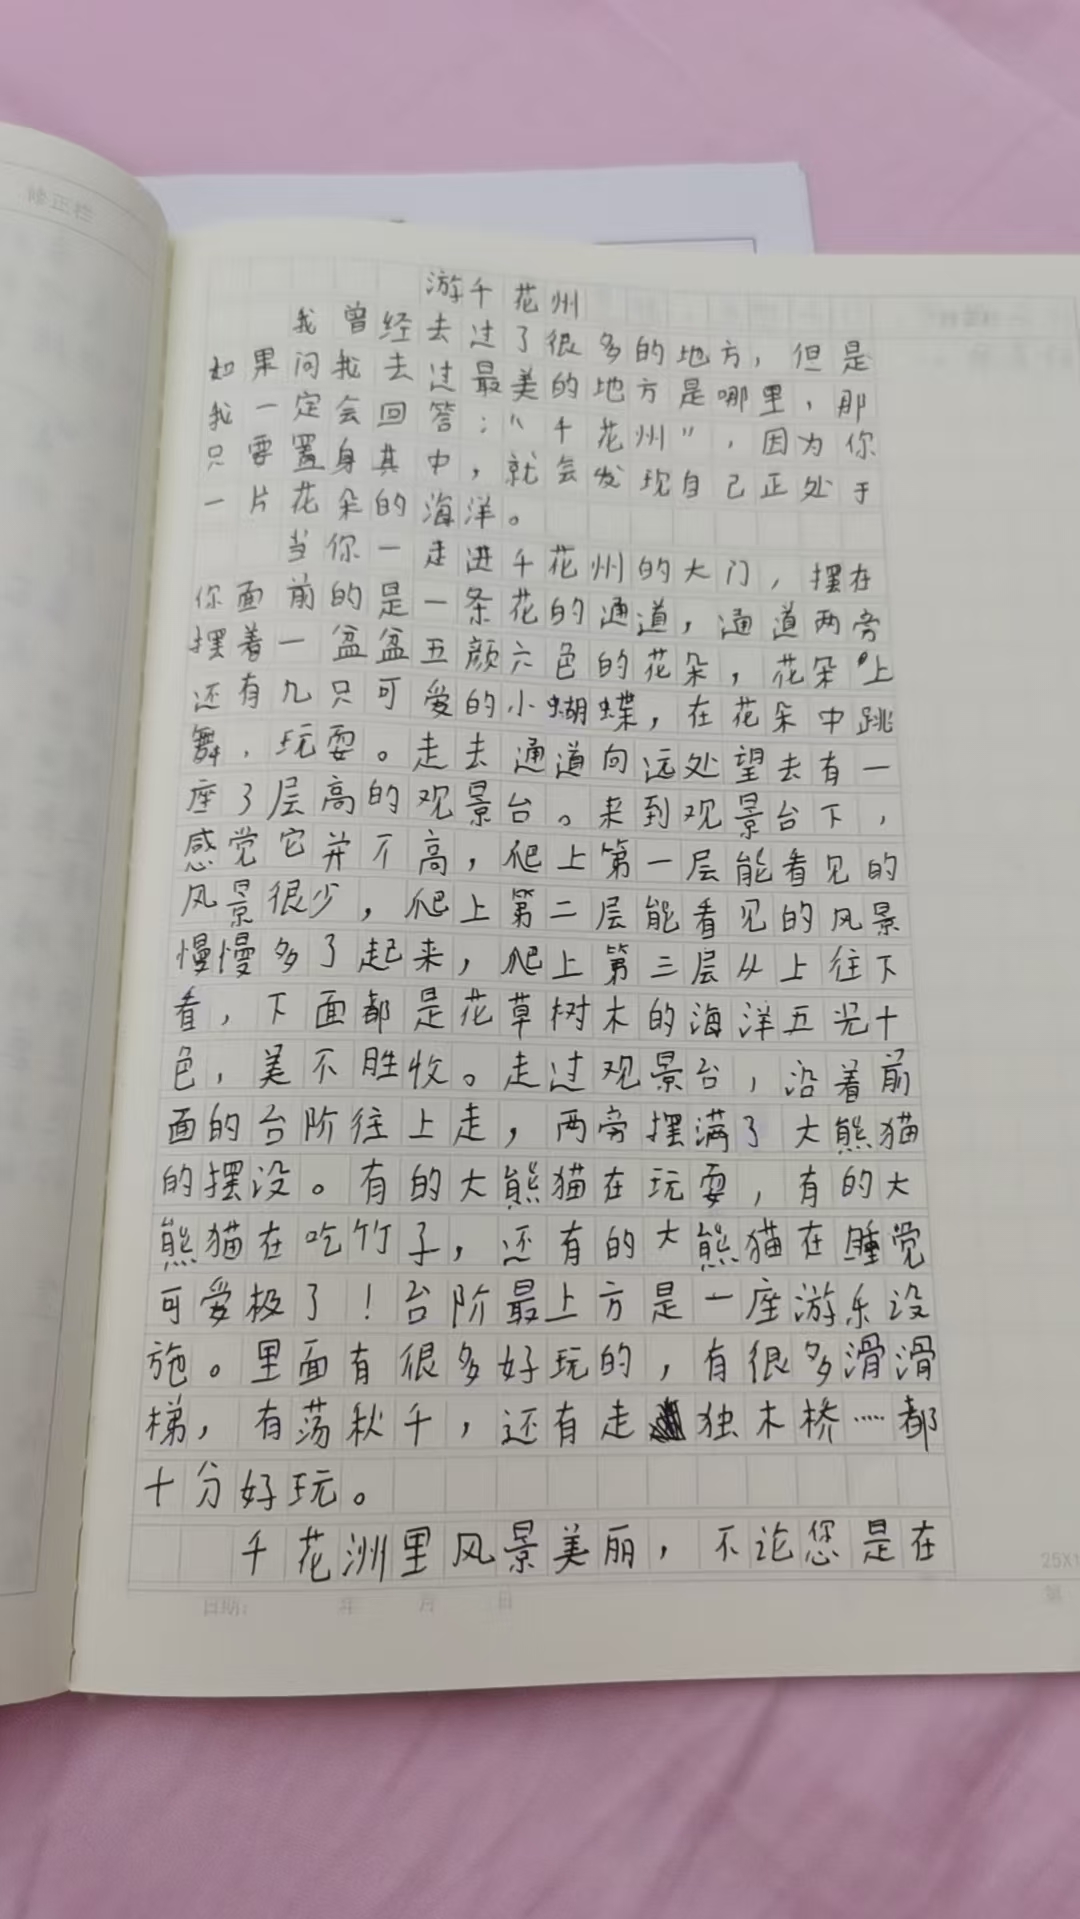 修正栏
游千花州
我曾经去过了很多的地方，但是
如果问我去过最美的地方是哪里，那
我一定会回答：“千花州”，因为你
只要置身其中，就会发现自己正处于
一片花朵的海洋。
当你一走进千花州的大门，摆在
你面前的是一条花的通道，通道两旁
摆着一盆盆五颜六色的花朵，花朵上
还有几只可爱的小蝴蝶，在花朵中跳
舞，玩耍。走去通道向远处望去有一
座了层高的观景台。来到观景台下，
感觉它并不高，爬上第一层能看见的
风景很少，爬上第二层能看见的风景
慢慢多了起来，爬上第三层从上往下
看，下面都是花草树木的海洋五光十
色，美不胜收。走过观景台，沿着前
面的台阶往上走，两旁摆满了大熊猫
的摆没。有的大熊猫在玩耍，有的大
熊猫在吃竹子，还有的大熊猫在睡觉
可爱极了！台阶最上方是一座游乐设
施。里面有很多好玩的，有很多滑滑
梯，有荡秋千，还有走独木桥……都
十分好玩。
千花洲里风景美丽，不论您是在
日期： 年 月 日
25X1
第